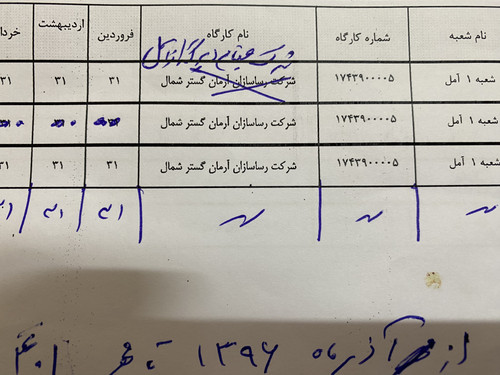 نام شعبه شماره کارگاه نام کارگاه فروردین اردیبهشت خرداد
شعبه ۱ آمل ۱۷۴۳۹۰۰۰۰۵ شرکت رساسازان آرمان گستر شمال ۳۱ ۳۱ ۳۱
شعبه ۱ آمل ۱۷۴۳۹۰۰۰۰۵ شرکت رساسازان آرمان گستر شمال
شعبه ۱ آمل ۱۷۴۳۹۰۰۰۰۵ شرکت رساسازان آرمان گستر شمال ۳۱ ۳۱ ۳۱
۳۱ ۳۱
از آذر ماه ۱۳۹۶